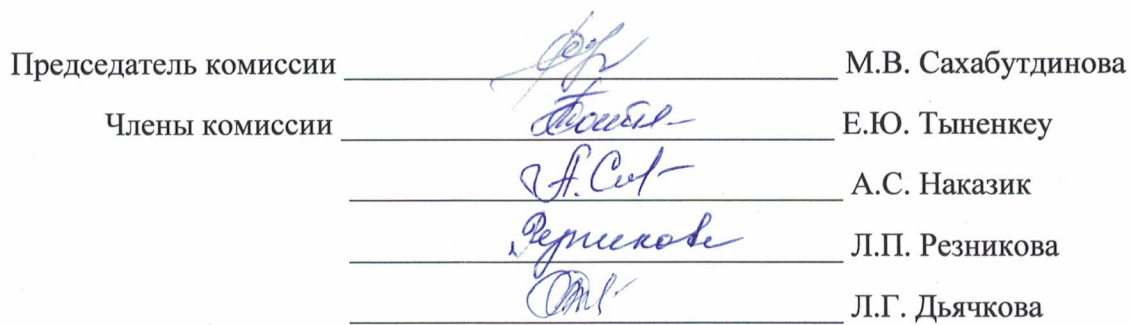 Председатель комиссии М.В. Сахабутдинова
Члены комиссии Е.Ю. Тыненкеу
А.С. Наказик
Резникова Л.П. Резникова
Л.Г. Дьячкова